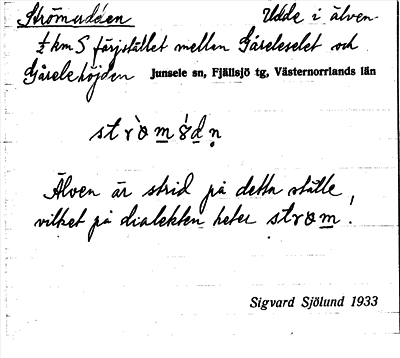 Strömsudden Udde i älven.
½ km S färjstället mellan Gåseleselet och
Gåselehöjden Junsele sn, Fjällsjö tg, Västernorrlands län
Älven är strid på detta ställe,
vilket på dialekten heter strom.
Sigvard Sjölund 1933